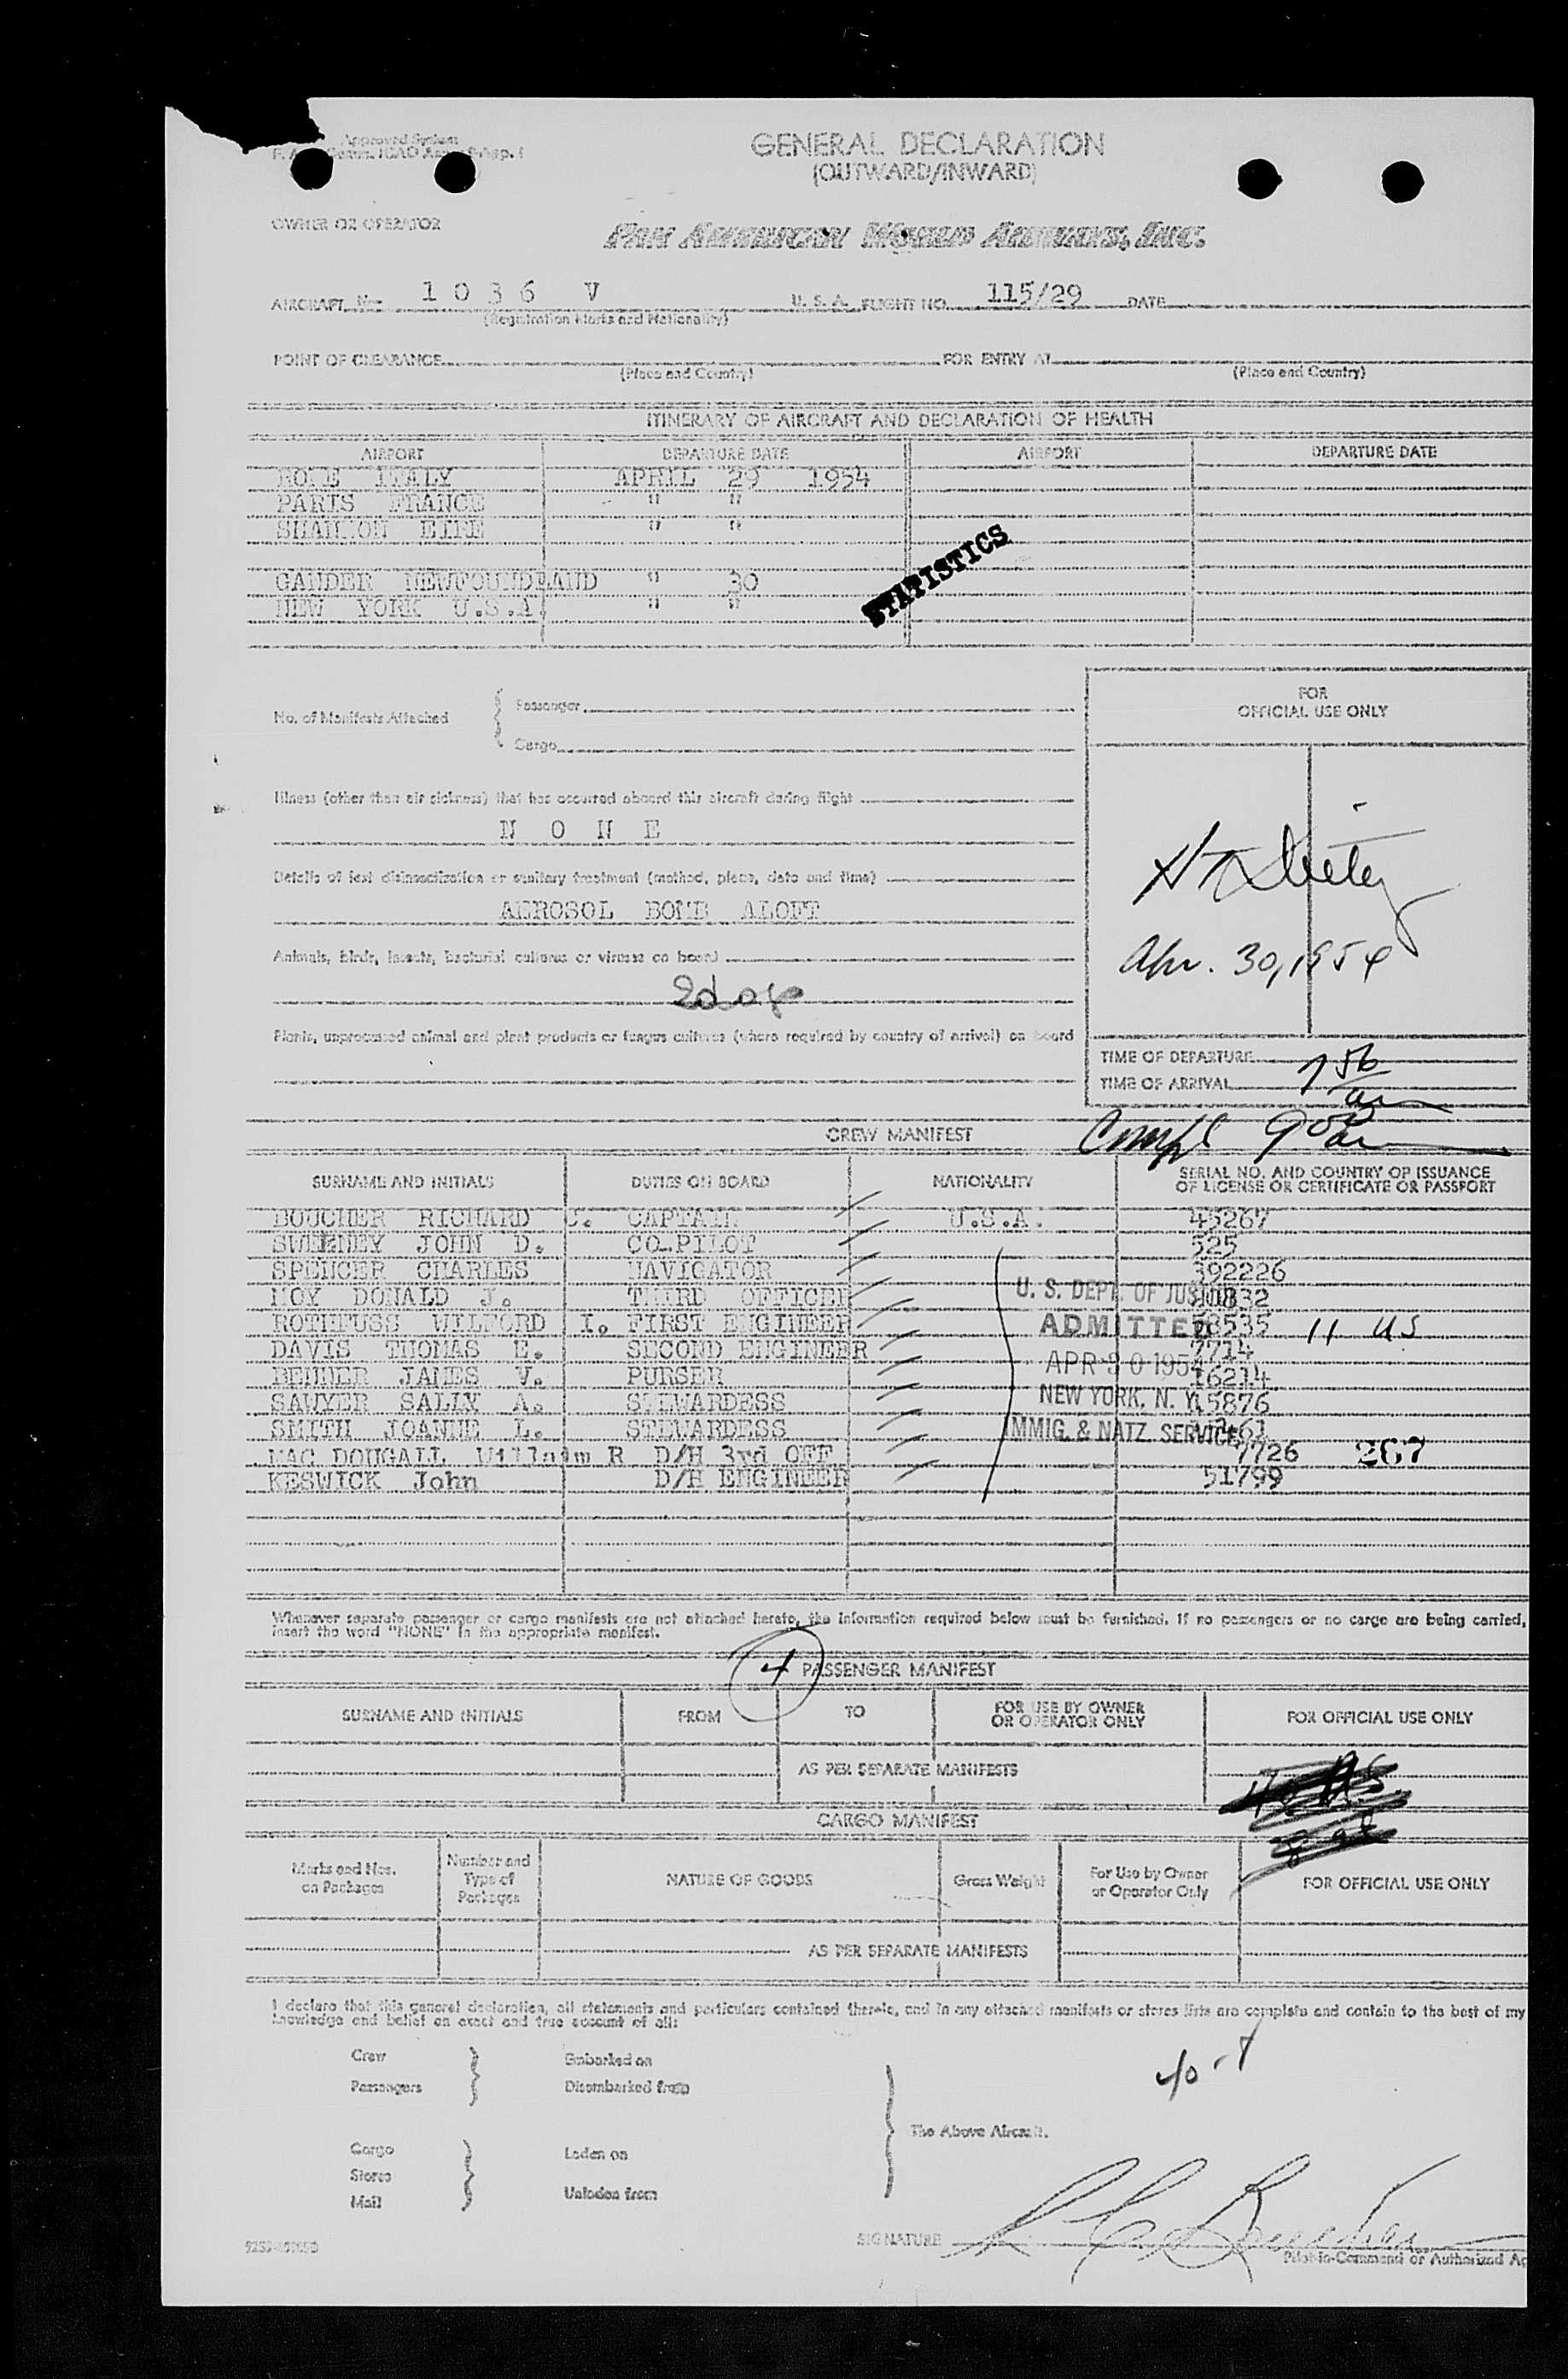 Approved System
GENERAL DECLARATION
(OUTWARD/INWARD)
OWNER OR OPERATOR
PAN AMERICAN WORLD AIRWAYS, INC.
AIRCRAFT No. 1 0 3 6 V U. S. A. FLIGHT NO. 115/29 DATE
(Registration Marks and Nationality)
POINT OF CLEARANCE FOR ENTRY AT
(Place and Country) (Place and Country)
ITINERARY OF AIRCRAFT AND DECLARATION OF HEALTH
AIRPORT DEPARTURE DATE AIRPORT DEPARTURE DATE
ROME ITALY APRIL 29 1954
PARIS FRANCE " "
SHANNON EIRE " "
STATISTICS
GANDER NEWFOUNDLAND " 30
NEW YORK U.S.A. " "
FOR
OFFICIAL USE ONLY
No. of Manifests Attached { Passenger
Cargo
Illness (other than air sickness) that has occurred aboard this aircraft during flight
N O N E
Details of last disinsectization or sanitary treatment (method, place, date and time)
AEROSOL BOMB ALOFT
Animals, birds, insects, bacterial cultures or viruses on board
2 dogs
Apr. 30, 1954
Plants, unprocessed animal and plant products or fungus cultures (where required by country of arrival) on board
TIME OF DEPARTURE
TIME OF ARRIVAL 7 56
Compl 9
CREW MANIFEST
SURNAME AND INITIALS DUTIES ON BOARD NATIONALITY SERIAL NO. AND COUNTRY OF ISSUANCE
OF LICENSE OR CERTIFICATE OR PASSPORT
BOUCHER RICHARD C. CAPTAIN U.S.A. 45267
SWEENEY JOHN D. CO-PILOT 525
SPENCER CHARLES NAVIGATOR 392226
MOY DONALD J. THIRD OFFICER
ROTHFUSS WILFORD I. FIRST ENGINEER 11 US
DAVIS THOMAS E. SECOND ENGINEER 7714
BENNER JAMES V. PURSER 16214
SAWYER SALLY A. STEWARDESS 15876
SMITH JOANNE L. STEWARDESS
MAC DOUGALL Willaim R D/H 3rd OFF 7726 267
KESWICK John D/H ENGINEER 51799
U. S. DEPT. OF JUSTICE
ADMITTED
APR 30 1954
NEW YORK, N. Y.
IMMIG. & NATZ. SERVICE
Whenever separate passenger or cargo manifests are not attached hereto, the information required below must be furnished. If no passengers or no cargo are being carried,
insert the word "NONE" in the appropriate manifest.
4 PASSENGER MANIFEST
SURNAME AND INITIALS FROM TO FOR USE BY OWNER
OR OPERATOR ONLY FOR OFFICIAL USE ONLY
AS PER SEPARATE MANIFESTS
CARGO MANIFEST
Marks and Nos.
on Packages
Number and
Type of
Packages
NATURE OF GOODS
Gross Weight
For Use by Owner
or Operator Only
FOR OFFICIAL USE ONLY
AS PER SEPARATE MANIFESTS
I declare that this general declaration, all statements and particulars contained therein, and in any attached manifests or stores lists are complete and contain to the best of my
knowledge and belief an exact and true account of all:
Crew
Passengers
Embarked on
Disembarked from
The Above Aircraft.
Cargo
Stores
Mail
Laden on
Unladen from
SIGNATURE R C Boucher
Pilot-in-Command or Authorized